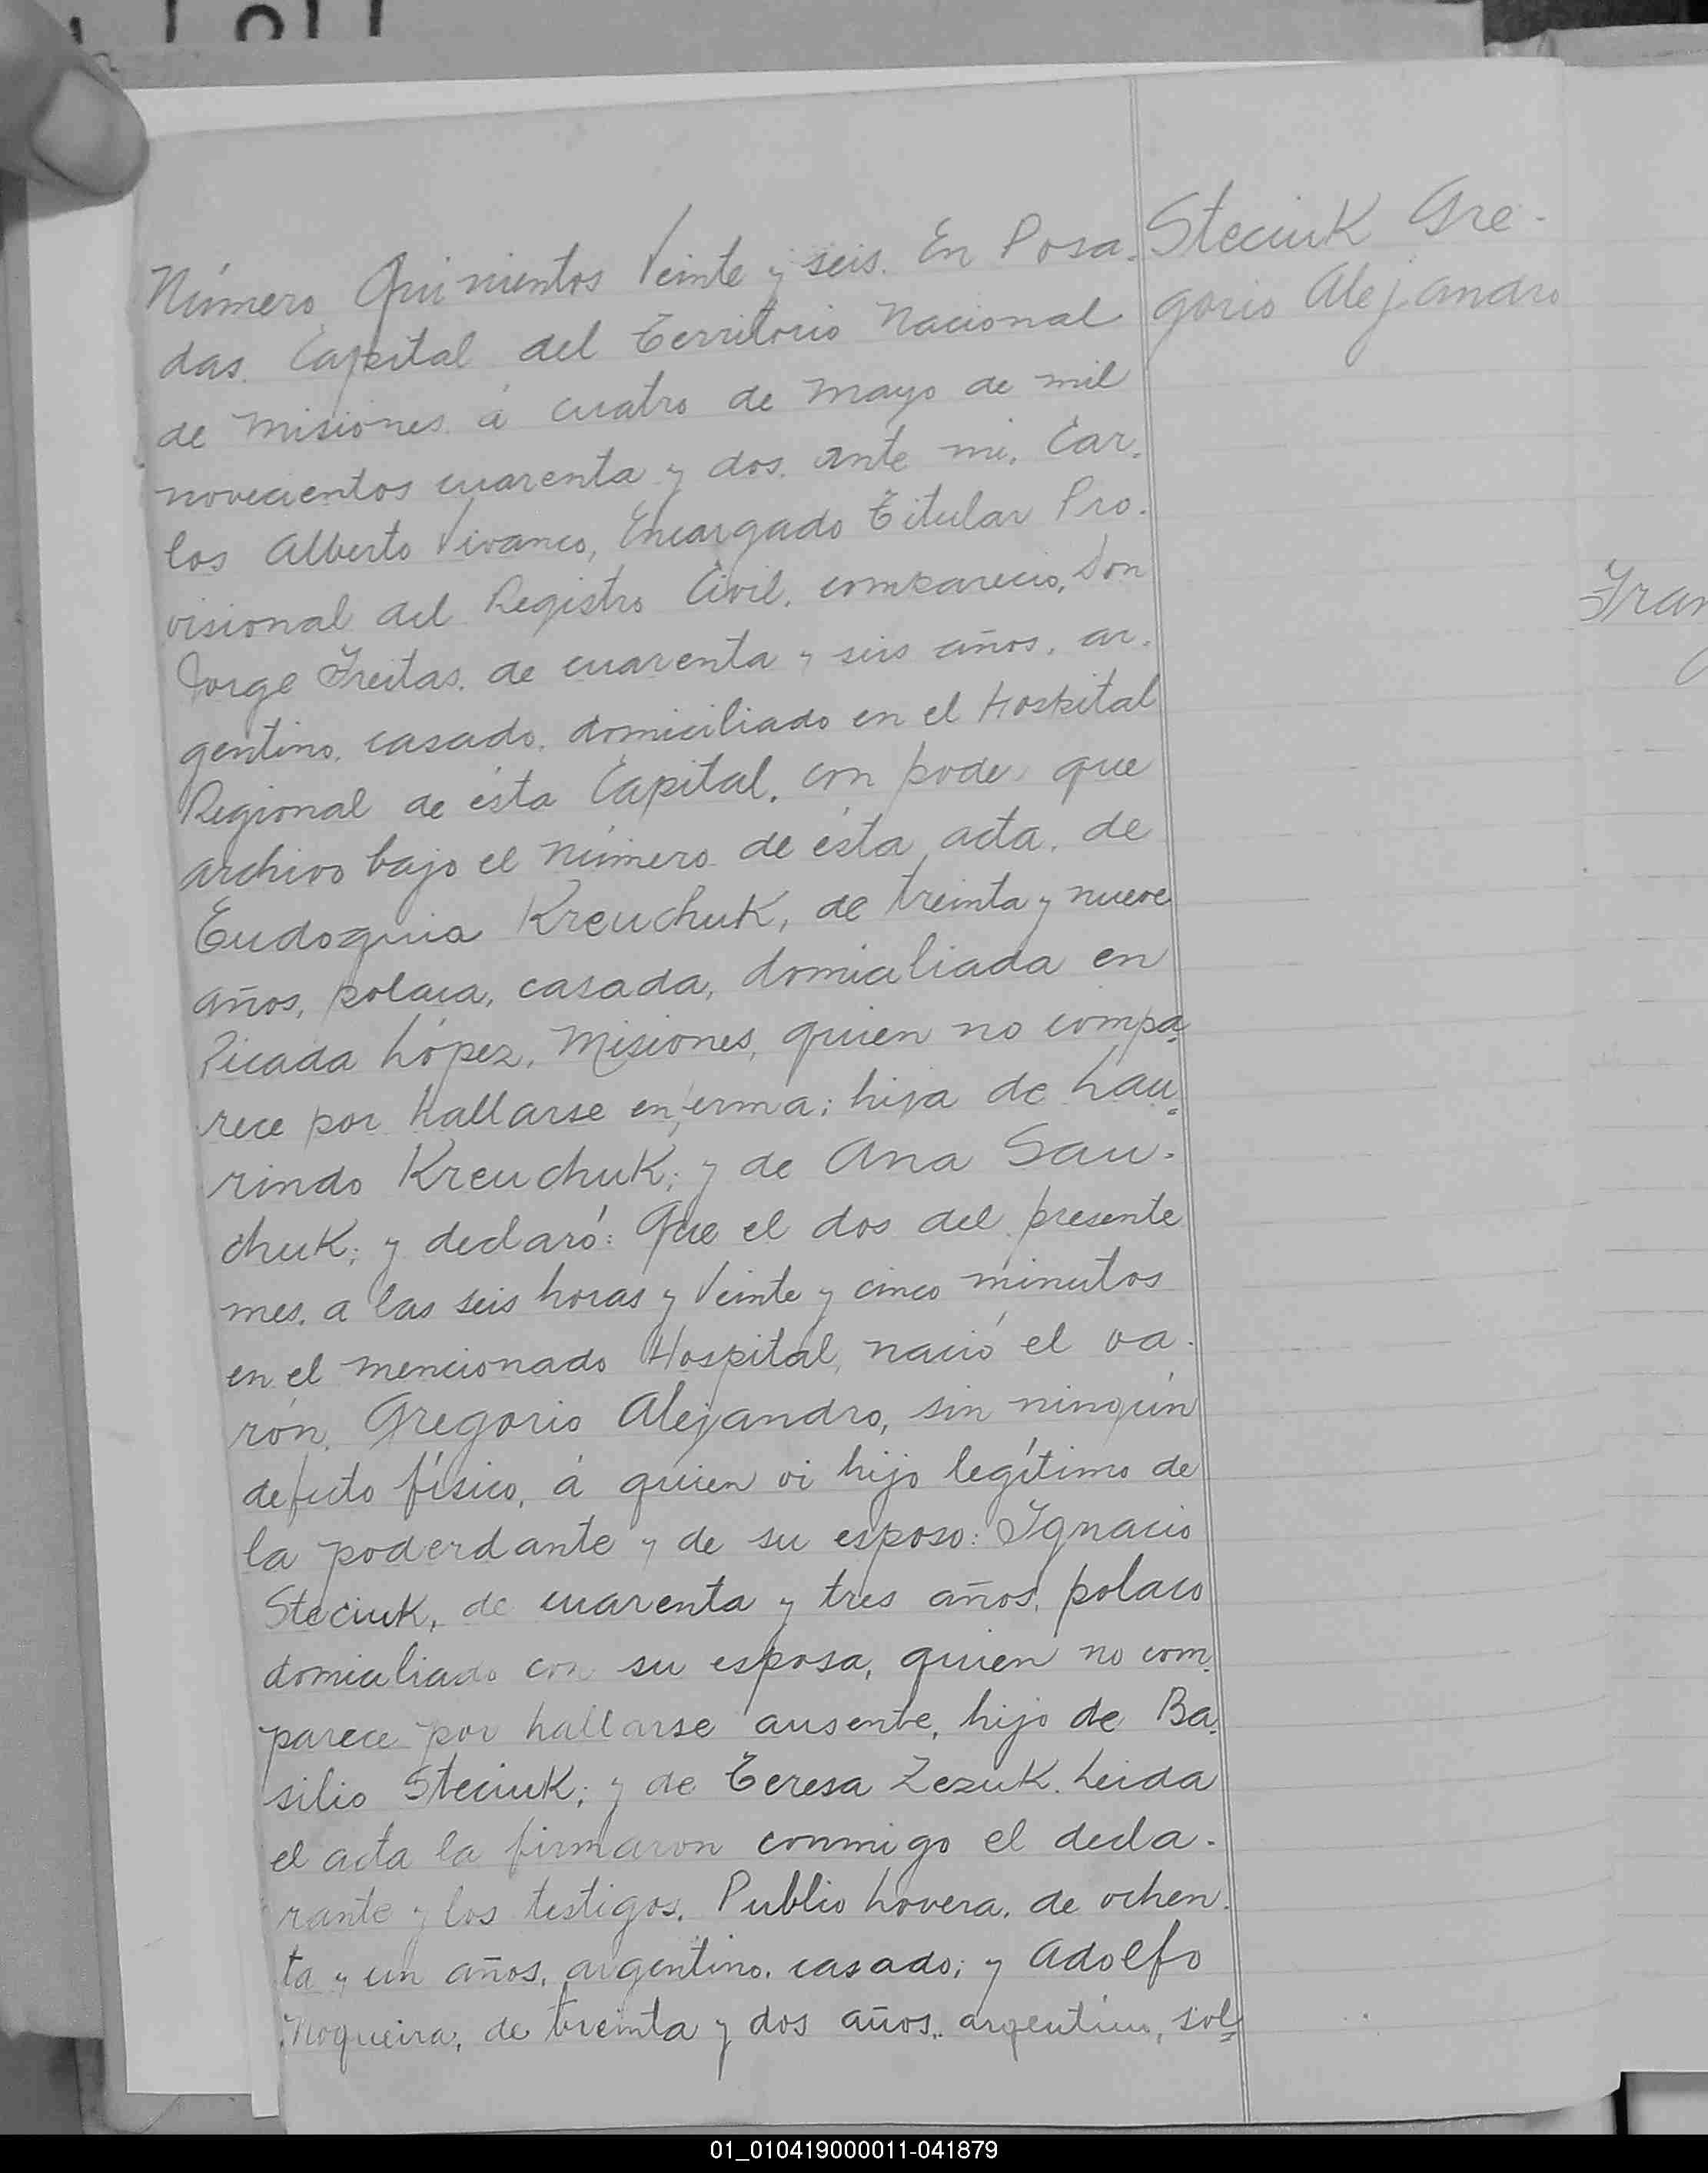 Número Quinientos Veinte y seis. En Posa-
das. Capital del Territorio Nacional
de Misiones. á cuatro de Mayo de mil
novecientos cuarenta y dos. ante mi, Car-
los Alberto Vivanco, Encargado Titular Pro-
visional del Registro Civil. compareció, Don
Jorge Freitas. de cuarenta y seis años, ar-
gentino. casado. domiciliado en el Hospital
Regional de ésta Capital. con poder que
archivo bajo el número de ésta acta, de
Eudoquia Kreuchuk, de treinta y nueve
años, polaca, casada, domiciliada en
Picada López, Misiones, quien no compa-
rece por hallarse enferma; hija de Lau-
rindo Kreuchuk; y de Ana Sau-
chuk; y declaró: Que el dos del presente
mes. a las seis horas y Veinte y cinco minutos
en el mencionado Hospital, nació el va-
rón, Gregorio Alejandro, sin ningún
defecto físico, á quien vi hijo legítimo de
la poderdante y de su esposo: Ignacio
Steciuk, de cuarenta y tres años, polaco
domiciliado con su esposa, quien no com-
parece por hallarse ausente, hijo de Ba-
silio Steciuk; y de Teresa Zezuk. Leida
el acta la firmaron conmigo el decla-
rante y los testigos, Publio Lovera, de ochen-
ta y un años, argentino, casado; y Adolfo
Noqueira, de treinta y dos años, argentino, sol-
Steciuk Gre-
gorio Alejandro
Fran
01_010419000011-041879